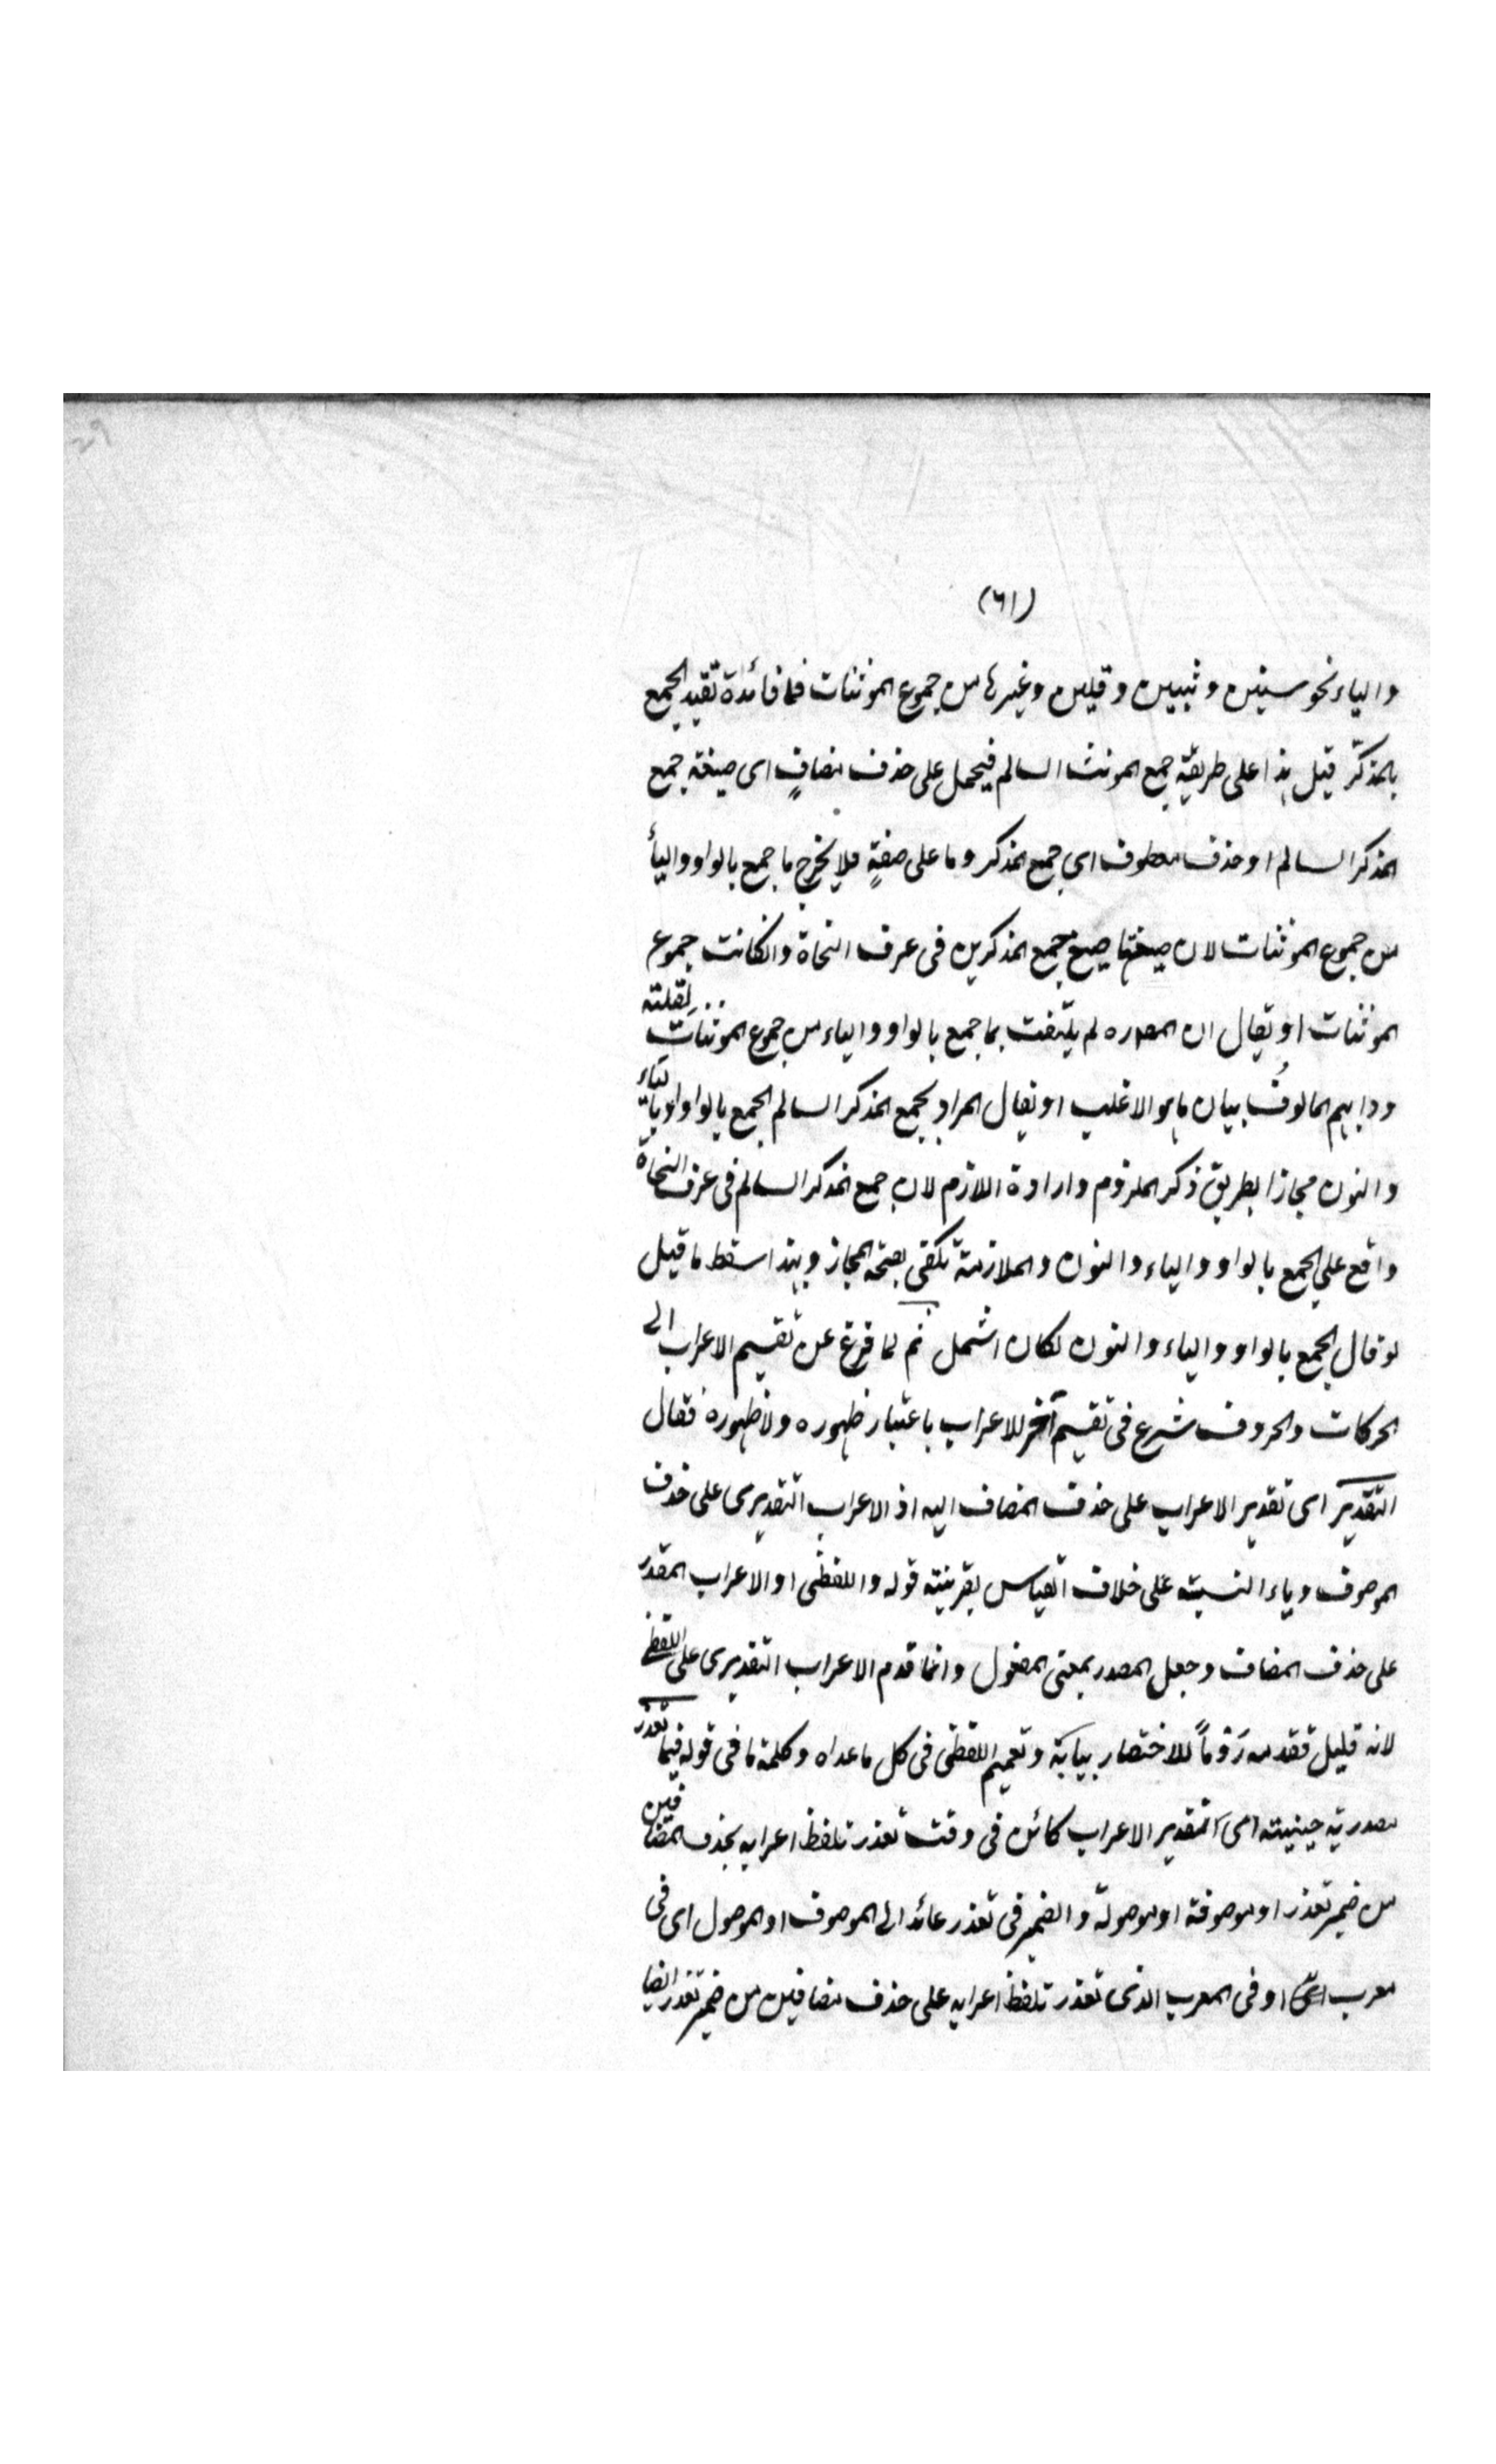 (٦١)
والياء نحو سنين و ثبين وقلين وغيرها من جموع المونثات فما فائدة تقيد الجمع
بالمذكر قيل هذا على طريقة جمع المونث السالم فيحمل على حذف مضافٍ اى صيغة جمع
المذكر السالم او حذف معطوف اى جمع المذكر وما على صفةٍ فلا يخرج ما جمع بالواو والياء
من جموع المونثات لان صيغتها صيغ جمع المذكرين فى عرف النحاة وانكانت جموع
المونثات او يقال ان المصره لم يلتفت بما جمع بالواو والياء من جموع المونثات لقلته
ودابهم المالوف بيان ماهو الاغلب او يقال المراد بجمع المذكر السالم الجمع بالواو او بالياء
والنون مجازا بطريق ذكر الملزوم وارادة اللازم لان جمع المذكر السالم فى عرف النحاة
واقع على الجمع بالواو والياء والنون والملازمة تكفى بصحة المجاز وبهذا سقط ما قيل
لو قال الجمع بالواو والياء والنون لكان اشمل ثم لما فرغ عن تقسيم الاعراب الى
الحركات والحروف شرع فى تقسيم آخر للاعراب باعتبار ظهوره ولا ظهوره فقال
التقدير اى تقدير الاعراب على حذف المضاف اليه اذ الاعراب التقديرى على حذف
الموصوف وياء النسبة على خلاف القياس بقرينة قوله واللفظى او الاعراب المقدر
على حذف المضاف وجعل المصدر بمعنى المفعول وانما قدم الاعراب التقديرى على اللفظى
لانه قليل فقدمه رَوْماً للاختصار ببيانه وتعميم اللفظى فى كل ما عداه وكلمة ما فى قوله فيما تعذر
مصدرية حينية اى التقدير الاعراب كائن فى وقت تعذر تلفظ اعرابه بحذف المضافين
من ضمير تعذر او موصوفة او موصولة والضمير فى تعذر عائد الى الموصوف او الموصول اى فى
معرب او فى المعرب الذى تعذر تلفظ اعرابه على حذف مضافين من ضمير تعذر ايضا